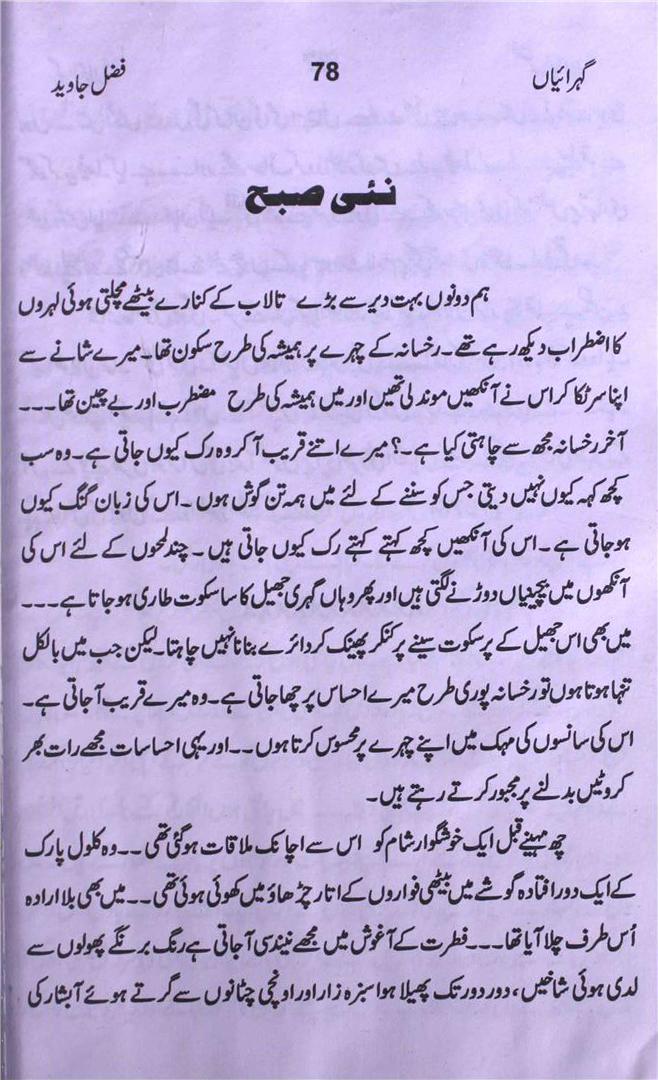 گہرائیاں 78 فضل جاوید
نئی صبح
ہم دونوں بہت دیر سے بڑے تالاب کے کنارے بیٹھے مچلتی ہوئی لہروں
کا اضطراب دیکھ رہے تھے۔ رخسانہ کے چہرے پر ہمیشہ کی طرح سکون تھا۔ میرے شانے سے
اپنا سر ٹکا کر اس نے آنکھیں موند لی تھیں اور میں ہمیشہ کی طرح مضطرب اور بے چین تھا۔۔۔
آخر رخسانہ مجھ سے چاہتی کیا ہے۔؟ میرے اتنے قریب آ کر وہ رک کیوں جاتی ہے۔ وہ سب
کچھ کہہ کیوں نہیں دیتی جس کو سننے کے لئے میں ہمہ تن گوش ہوں۔ اس کی زبان گنگ کیوں
ہو جاتی ہے۔ اس کی آنکھیں کچھ کہتے کہتے رک کیوں جاتی ہیں۔ چند لمحوں کے لئے اس کی
آنکھوں میں بیچینیاں دوڑنے لگتی ہیں اور پھر وہاں گہری جھیل کا سا سکوت طاری ہو جاتا ہے۔۔۔
میں بھی اس جھیل کے پر سکوت سینے پر کنکر پھینک کر دائرے بنانا نہیں چاہتا۔ لیکن جب میں بالکل
تنہا ہوتا ہوں تو رخسانہ پوری طرح میرے احساس پر چھا جاتی ہے۔ وہ میرے قریب آ جاتی ہے۔
اس کی سانسوں کی مہک میں اپنے چہرے پر محسوس کرتا ہوں۔۔ اور یہی احساسات مجھے رات بھر
کروٹیں بدلنے پر مجبور کرتے رہتے ہیں۔
چھ مہینے قبل ایک خوشگوار شام کو اس سے اچانک ملاقات ہو گئی تھی۔۔ وہ کلول پارک
کے ایک دور افتادہ گوشے میں بیٹھی فواروں کے اتار چڑھاؤ میں کھوئی ہوئی تھی۔۔ میں بھی بلا ارادہ
اُس طرف چلا آیا تھا۔۔۔ فطرت کے آغوش میں مجھے نیند سی آ جاتی ہے رنگ برنگے پھولوں سے
لدی ہوئی شاخیں، دور دور تک پھیلا ہوا سبزہ زار اور اونچی چٹانوں سے گرتے ہوئے آبشار کی